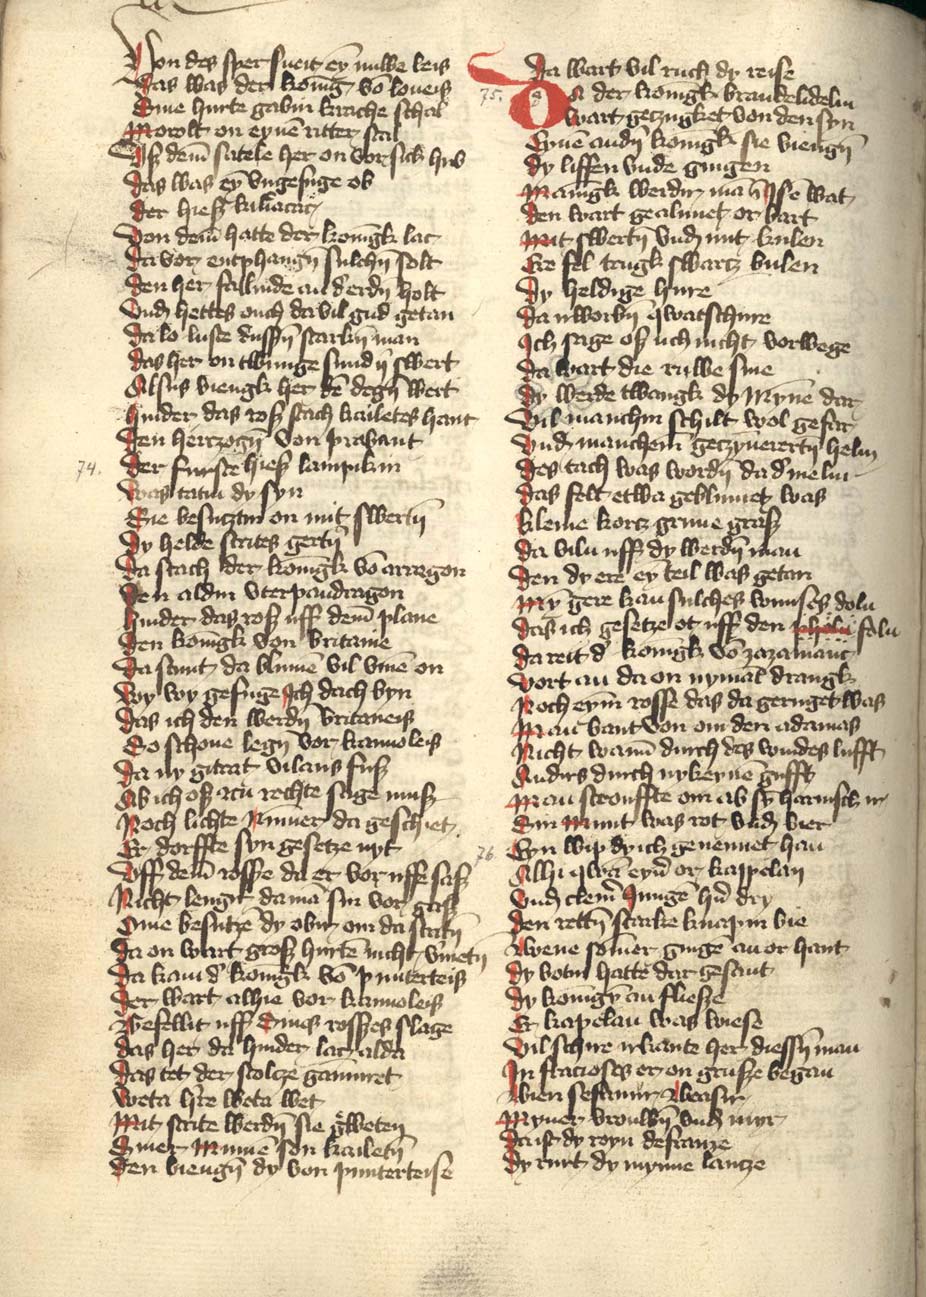 Von des sper sneit eyn nuwe leis
das was der konig vō loneis
Eine hurte gabin krache schal
Morolt on eynē ritter stal
Vß dem̄ satele her on vor sich hub
das was eyn̄ vngefuge ob
der hieß killiacac
Von dem̄ hatte der konigk lac
da vor entphangn̄ sulchin̄ solt
den her fallinde an d' erdn̄ holt
Vnd hettes ouch da vil gud getan
da lo luste dussn̄ starkin̄ man
das her on twunge sund'n̄ swert
Alsus viengk her dē degn̄ wert
hinder das roß stach kailetes hant
den hertzogn̄ von prabant
74.
der furste hieß lampikin
was tatin dy syn
Sie besutztin on mit swertn̄
dy helde strites gertn̄
da stach der konigk vō arragon
den aldin vterpandragon
hinder das roß uff dem̄ plane
den konigk von britanie
da stunt da blume vil vmē on
Wy voy gefuge ich dach byn
das ich den werdn̄ britaneis
So schone legn̄ vor kanuoleis
da ny gitrat vilans fuß
Ab ich oß uch rechte sage muß
Noch lichte nimer da geschiet
Er dorffte syn gesetze nyt
Vff dem̄ rosse da er vor uffe saß
Nicht lengir da mā sin vor gaß
Sine besutze dy obir om da stritn̄
da on wart groß hurtē nicht v'mitn̄
da kam d' konigk vō punterteis
der wart alhie vor kanuoleis
Gefellit uff Sines rosses slage
das her da hinder lac alda
das tet der stolcze gamuret
weta h're weta wet
Mit strite werdn̄ sie gweten
Siner Mumē son kailetn̄
den viengn̄ dy von punterteise
da wart vil ruch dy reise
75.
Da der konigk brandelidelin
Wart geczugket von den syn
Eynē andn̄ konigk sie viengn̄
dy liffen vnde gingen
Manigk werdir man̄ in ise wat
den wart gealunet or bart
Mit swertn̄ vnd mit kulen
Ere fel trugk swartz bulen
dy heldige hure
da irworbn̄ qwatschure
Ich sage oß uch nicht vorwege
da wart die ruwe sine
dy werde twangk dy Myne dar
Vil manchin schilt wol gefar
Vnd manchem geczymertn̄ helm
des tach was wordn̄ da d' melm
das felt etwa geblumet was
kleine kortz grune graß
da viln uff dy werdn̄ man
den dy ere eyn̄ teil was getan
Myn̄ gere kan sulches wunses doln
das ich gesetze ot uff den foln
da reit d' konigk vō zazamanc
Vort an da on nymāt drangk
Noch eym̄ rosse das da geruget was
Man bant von om den adamas
Nicht wanē durch des windes lufft
Anders durch nykeynē gufft
Man strouffte om ab syn̄ harnisch ir
Sin Munt was rot vnd vier
76.
Eyn wip dy ich genennet han
Alhi qwā eyn̄ or kappelan
Vnd clein' Jungē h'rn̄ dry
den rettn̄ starke knapin bie
zwene sōmer gingē an or hant
dy botin hatte dar gesant
dy konign̄ an fliesze
Er kapelan was wiese
Vil schire irkante her diessn̄ man
In franzoises er on grusze began
bien sefanur beasir
Myner vrouwn̄ vnd mir
daist dy royn defranze
dy rurt dy mynne lantze